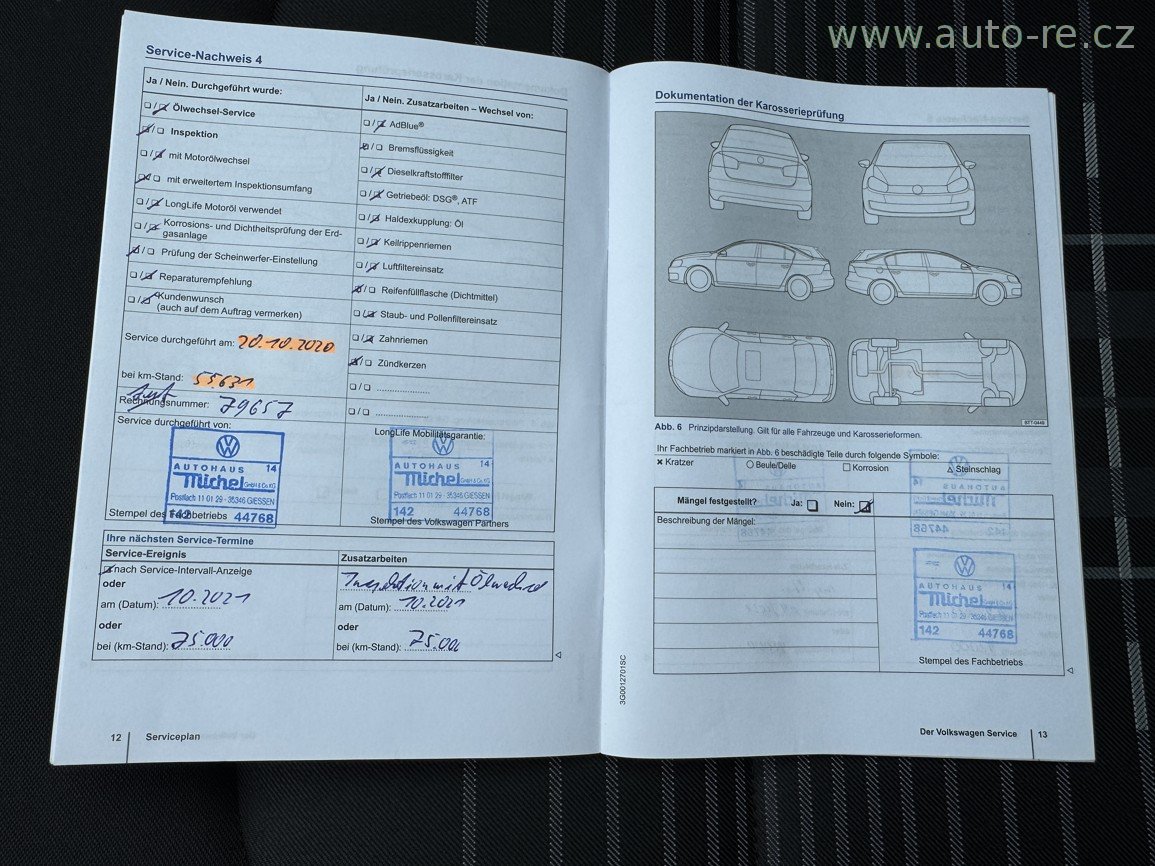 www.auto-re.cz
Service-Nachweis 4
Ja / Nein. Durchgeführt wurde:
Ölwechsel-Service
Inspektion
mit Motorölwechsel
mit erweitertem Inspektionsumfang
LongLife Motoröl verwendet
Korrosions- und Dichtheitsprüfung der Erd-
gasanlage
Prüfung der Scheinwerfer-Einstellung
Reparaturempfehlung
Kundenwunsch
(auch auf dem Auftrag vermerken)
Service durchgeführt am: 20.10.2020
bei km-Stand: 55.631
Rechnungsnummer: 79657
Service durchgeführt von:
AUTOHAUS 14
Michel GmbH & Co. KG
Postfach 11 01 29 - 35346 GIESSEN
142 44768
Stempel des Fachbetriebs
Ja / Nein. Zusatzarbeiten – Wechsel von:
AdBlue®
Bremsflüssigkeit
Dieselkraftstofffilter
Getriebeöl: DSG®, ATF
Haldexkupplung: Öl
Keilrippenriemen
Luftfiltereinsatz
Reifenfüllflasche (Dichtmittel)
Staub- und Pollenfiltereinsatz
Zahnriemen
Zündkerzen
LongLife Mobilitätsgarantie:
AUTOHAUS 14
Michel GmbH & Co. KG
Postfach 11 01 29 - 35346 GIESSEN
142 44768
Stempel des Volkswagen Partners
Ihre nächsten Service-Termine
Service-Ereignis
nach Service-Intervall-Anzeige
oder
am (Datum): 10.2021
oder
bei (km-Stand): 75.000
Zusatzarbeiten
Inspektion mit Ölwechsel
am (Datum): 10.2021
oder
bei (km-Stand): 75.000
12 Serviceplan
3G0012701SC
Dokumentation der Karosserieprüfung
BTT-0449
Abb. 6 Prinzipdarstellung. Gilt für alle Fahrzeuge und Karosserieformen.
Ihr Fachbetrieb markiert in Abb. 6 beschädigte Teile durch folgende Symbole:
Kratzer Beule/Delle Korrosion Steinschlag
Mängel festgestellt? Ja: Nein:
Beschreibung der Mängel:
AUTOHAUS 14
Michel GmbH & Co. KG
Postfach 11 01 29 - 35346 GIESSEN
142 44768
Stempel des Fachbetriebs
Der Volkswagen Service 13